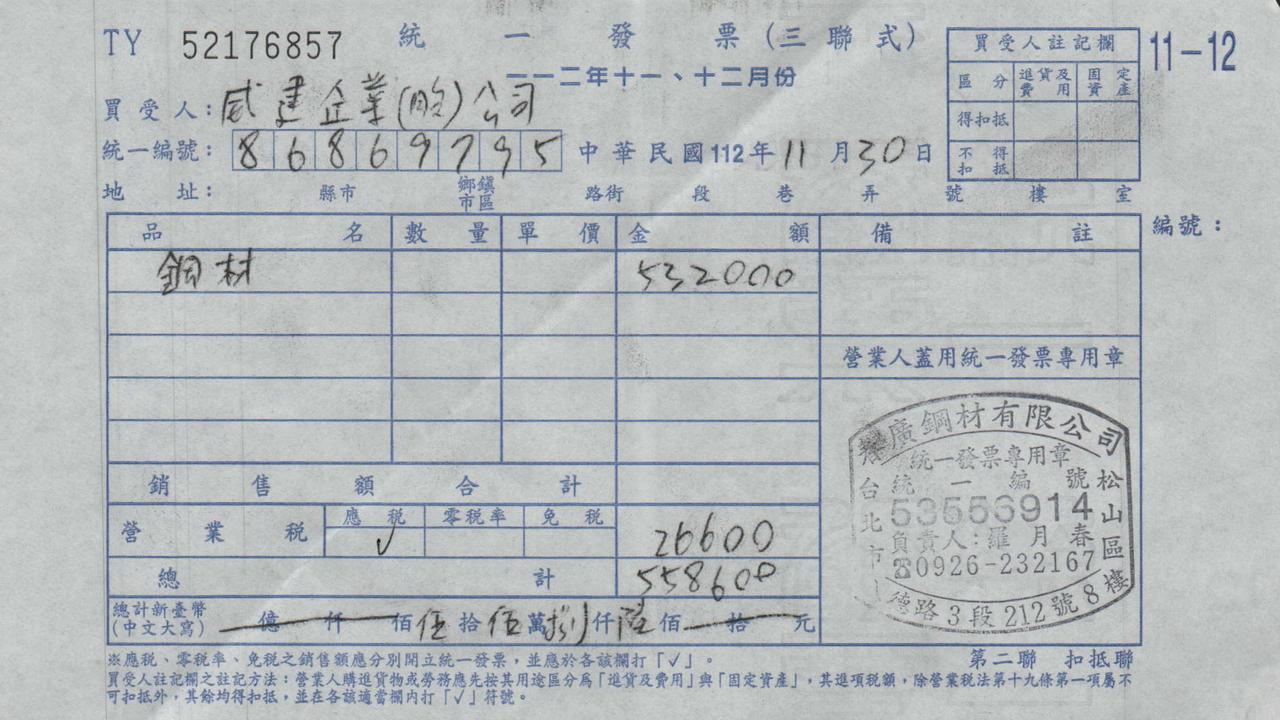 TY 52176857 統一發票(三聯式)
一一二年十一、十二月份
11-12
買受人註記欄
區分 進貨及費用 固定資產
得扣抵
不得扣抵
買受人:威建企業(股)公司
統一編號:86869795 中華民國112年11月30日
地址: 縣市 鄉鎮市區 路街 段 巷 弄 號 樓 室
編號:
品名 數量 單價 金額 備註
鋼材 532000
營業人蓋用統一發票專用章
銷售額合計
營業稅 應稅 零稅率 免稅
✓ 26600
總計 558600
總計新臺幣(中文大寫) 億 仟 佰伍拾伍萬捌仟陸佰 拾 元
廣鋼材有限公司
統一發票專用章
統一編號
53556914
負責人:羅月春
☎0926-232167
台北市松山區
德路3段212號8樓
第二聯 扣抵聯
※應稅、零稅率、免稅之銷售額應分別開立統一發票,並應於各該欄打「✓」。
買受人註記欄之註記方法:營業人購進貨物或勞務應先按其用途區分為「進貨及費用」與「固定資產」,其進項稅額,除營業稅法第十九條第一項屬不
可扣抵外,其餘均得扣抵,並在各該適當欄內打「✓」符號。